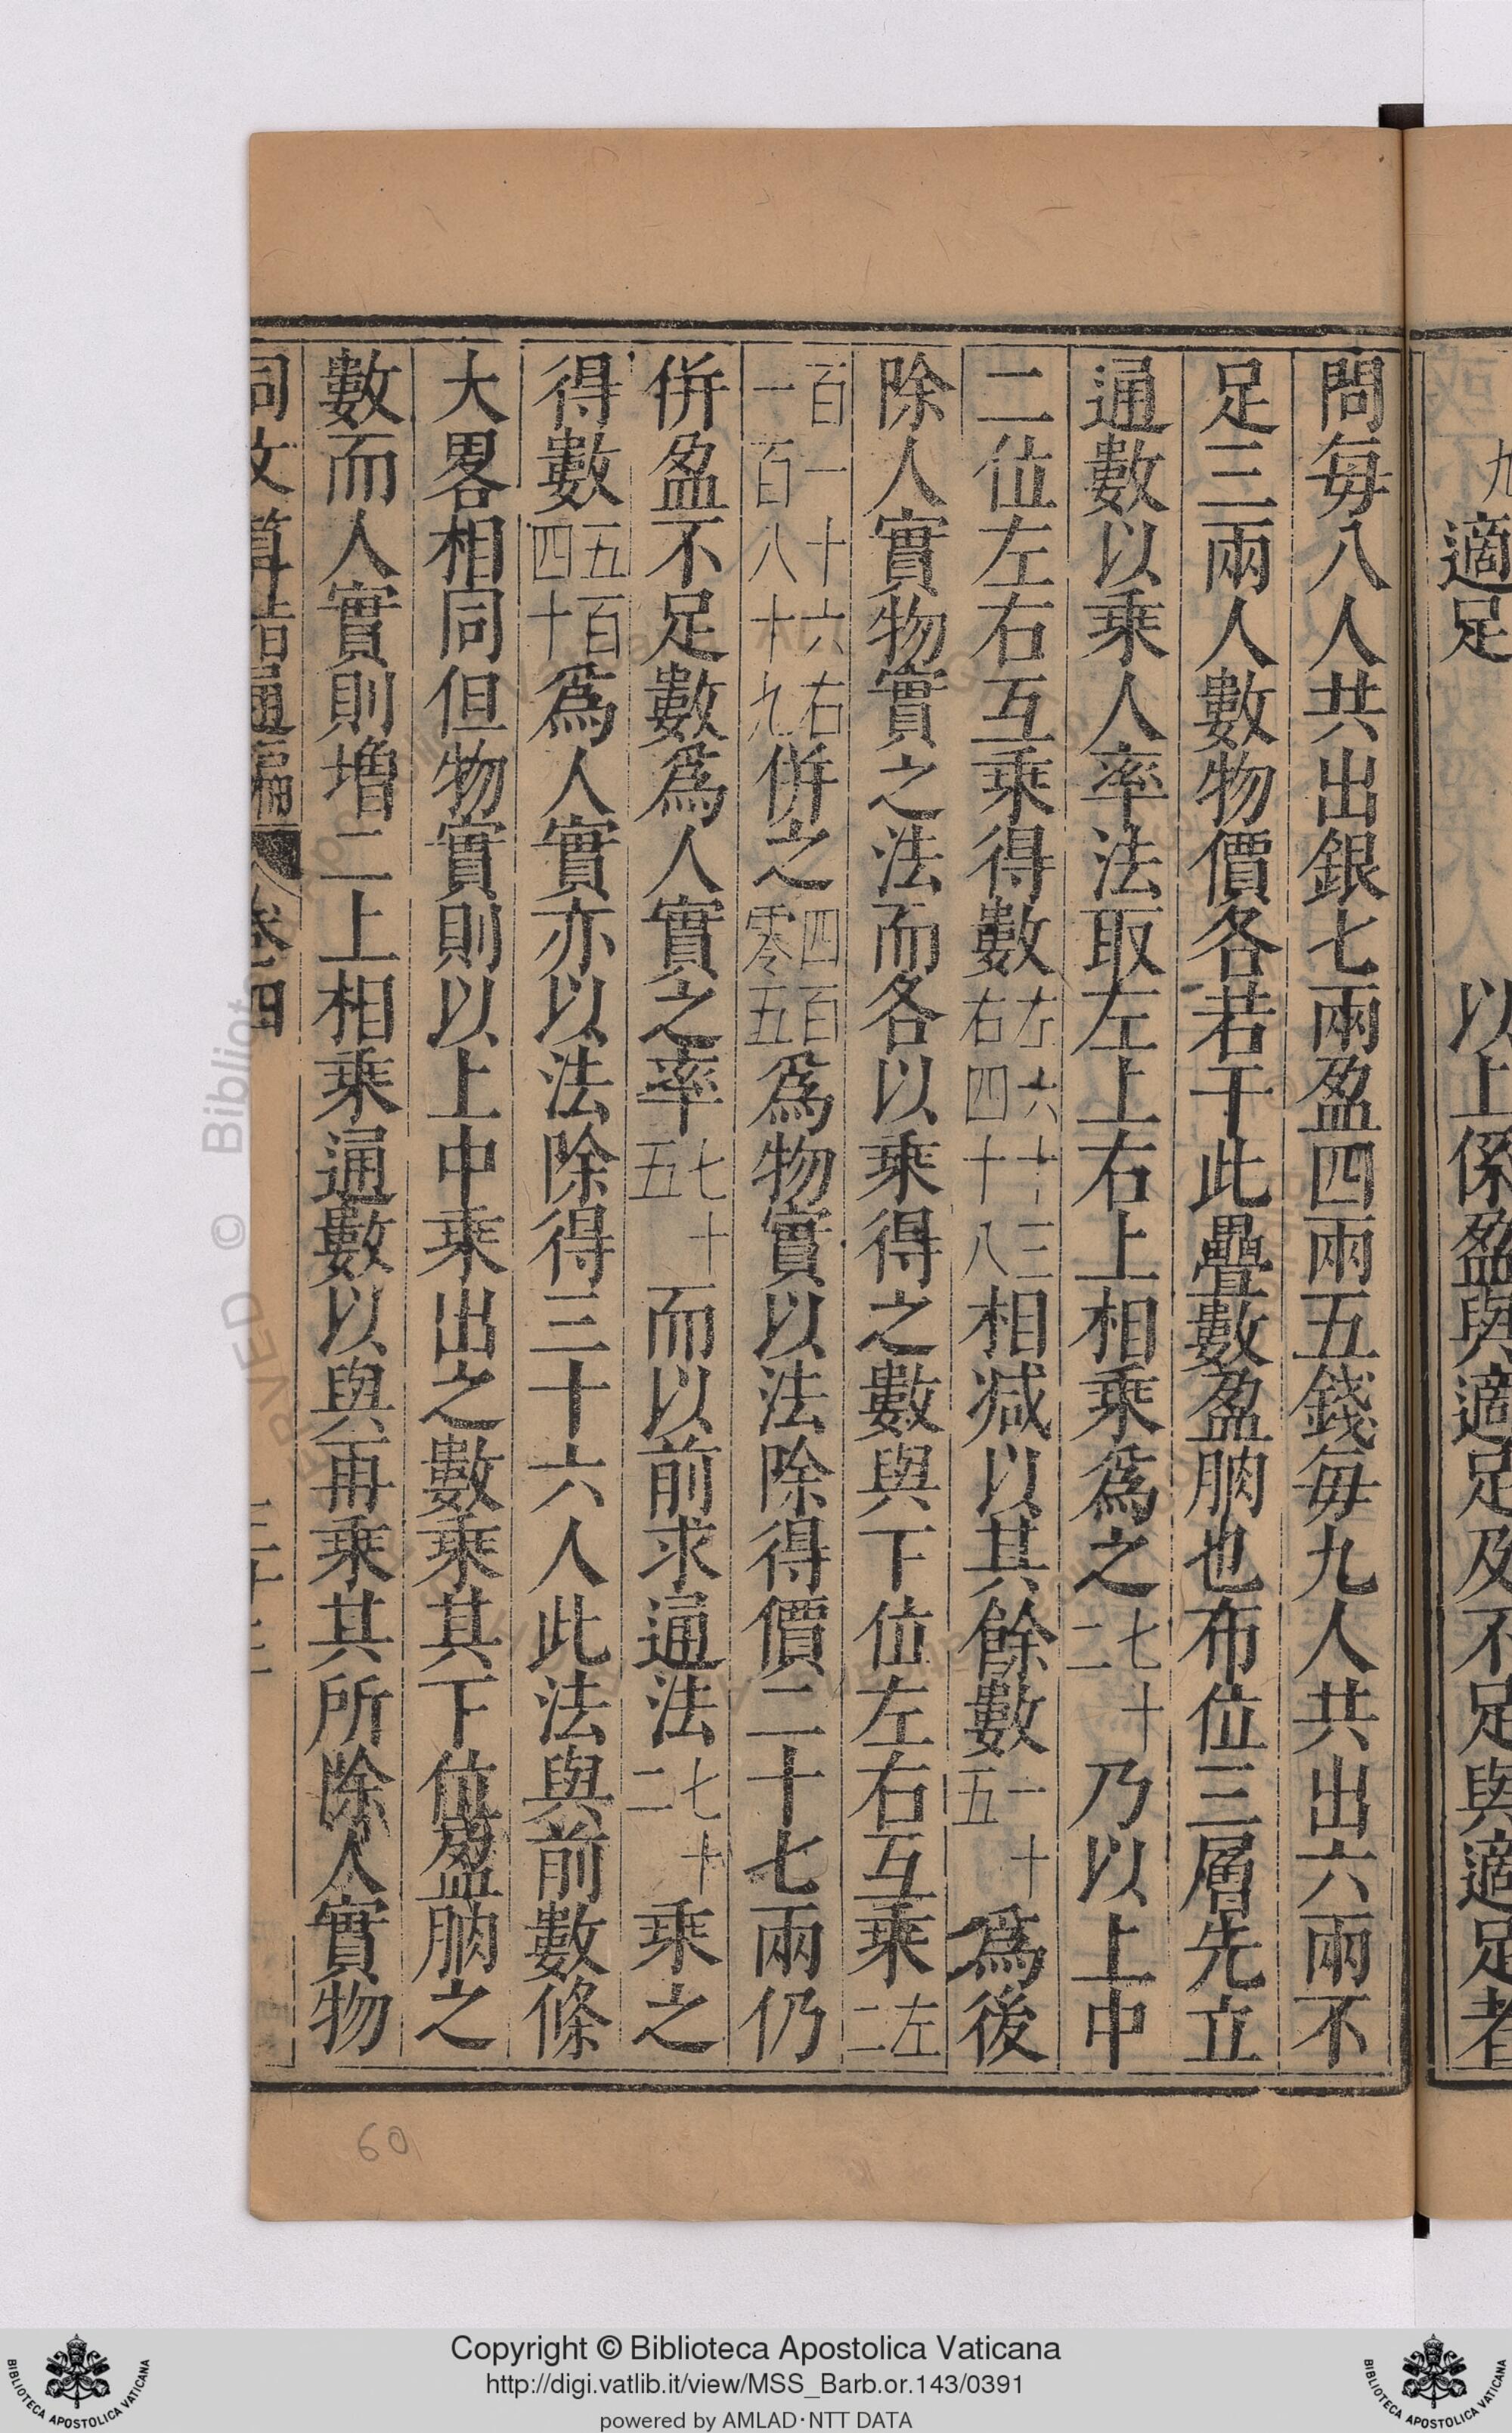 九適足　以上係盈與適足及不足與適足者
問每八人共出銀七兩盈四兩五錢每九人共出六兩不
足三兩人數物價各若干此疊數盈朒也布位三層先立
通數以乘人率法取左上右上相乘爲之七十二乃以上中
二位左右互乘得數左六十三右四十八相減以其餘數一十五爲後
除人實物實之法而各以乘得之數與下位左右互乘左二
百一十六右一百八十九併之四百零五爲物實以法除得價二十七兩仍
併盈不足數爲人實之率七十五而以前求通法七十二乘之
得數五百四十爲人實亦以法除得三十六人此法與前數條
大畧相同但物實則以上中乘出之數乘其下位盈朒之
數而人實則增二上相乘通數以與再乘其所除人實物
同文算指通編　卷四　三十三
60
Copyright © Biblioteca Apostolica Vaticana
http://digi.vatlib.it/view/MSS_Barb.or.143/0391
powered by AMLAD·NTT DATA
BIBLIOTECA APOSTOLICA VATICANA
BIBLIOTECA APOSTOLICA VATICANA